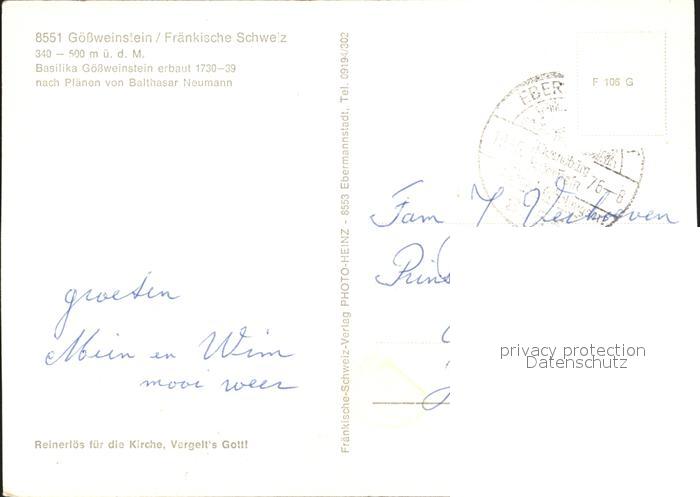 8551 Gößweinstein / Fränkische Schweiz
340 — 500 m ü. d. M.
Basilika Gößweinstein erbaut 1730—39
nach Plänen von Balthasar Neumann
groeten
Mien en Wim
mooi weer
Reinerlös für die Kirche, Vergelt's Gott!
Fränkische-Schweiz-Verlag PHOTO-HEINZ - 8553 Ebermannstadt, Tel. 09194/302
F 106 G
EBER
76 - 8
Fam Verhoeven
Prins
privacy protection
Datenschutz